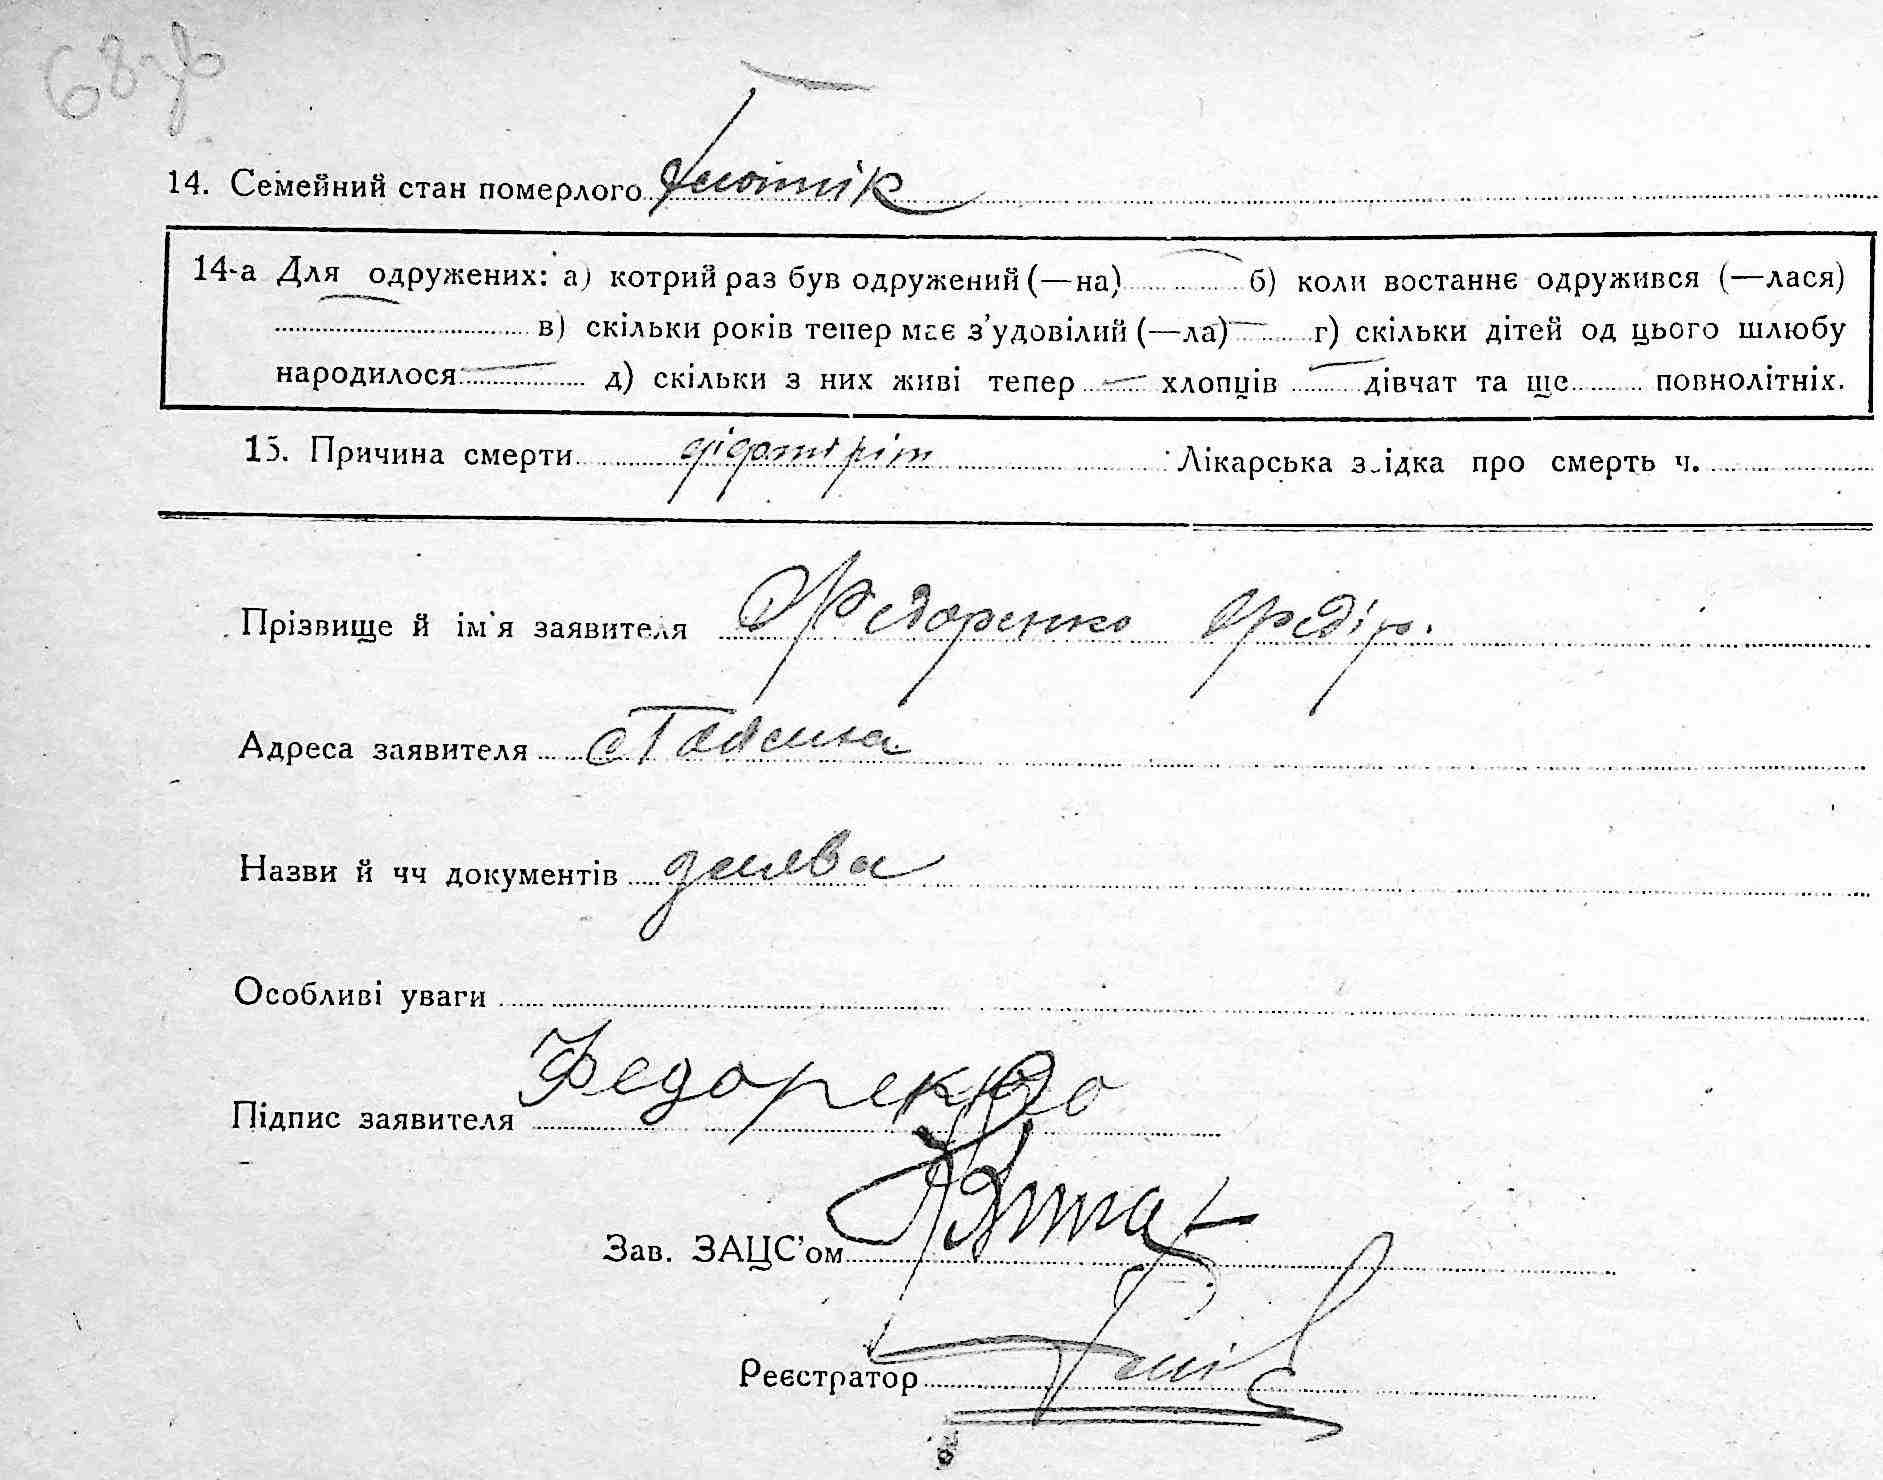 68зв
14. Семейний стан померлого
14-а Для одружених: а) котрий раз був одружений (—на) б) коли востаннє одружився (—лася)
в) скільки років тепер має з'удовілий (—ла) г) скільки дітей од цього шлюбу
народилося д) скільки з них живі тепер хлопців дівчат та ще повнолітніх.
15. Причина смерти Лікарська звідка про смерть ч.
Прізвище й ім'я заявителя Федоренко Федір.
Адреса заявителя
Назви й чч документів заява
Особливі уваги
Підпис заявителя Федоренко
Зав. ЗАЦС'ом
Реєстратор